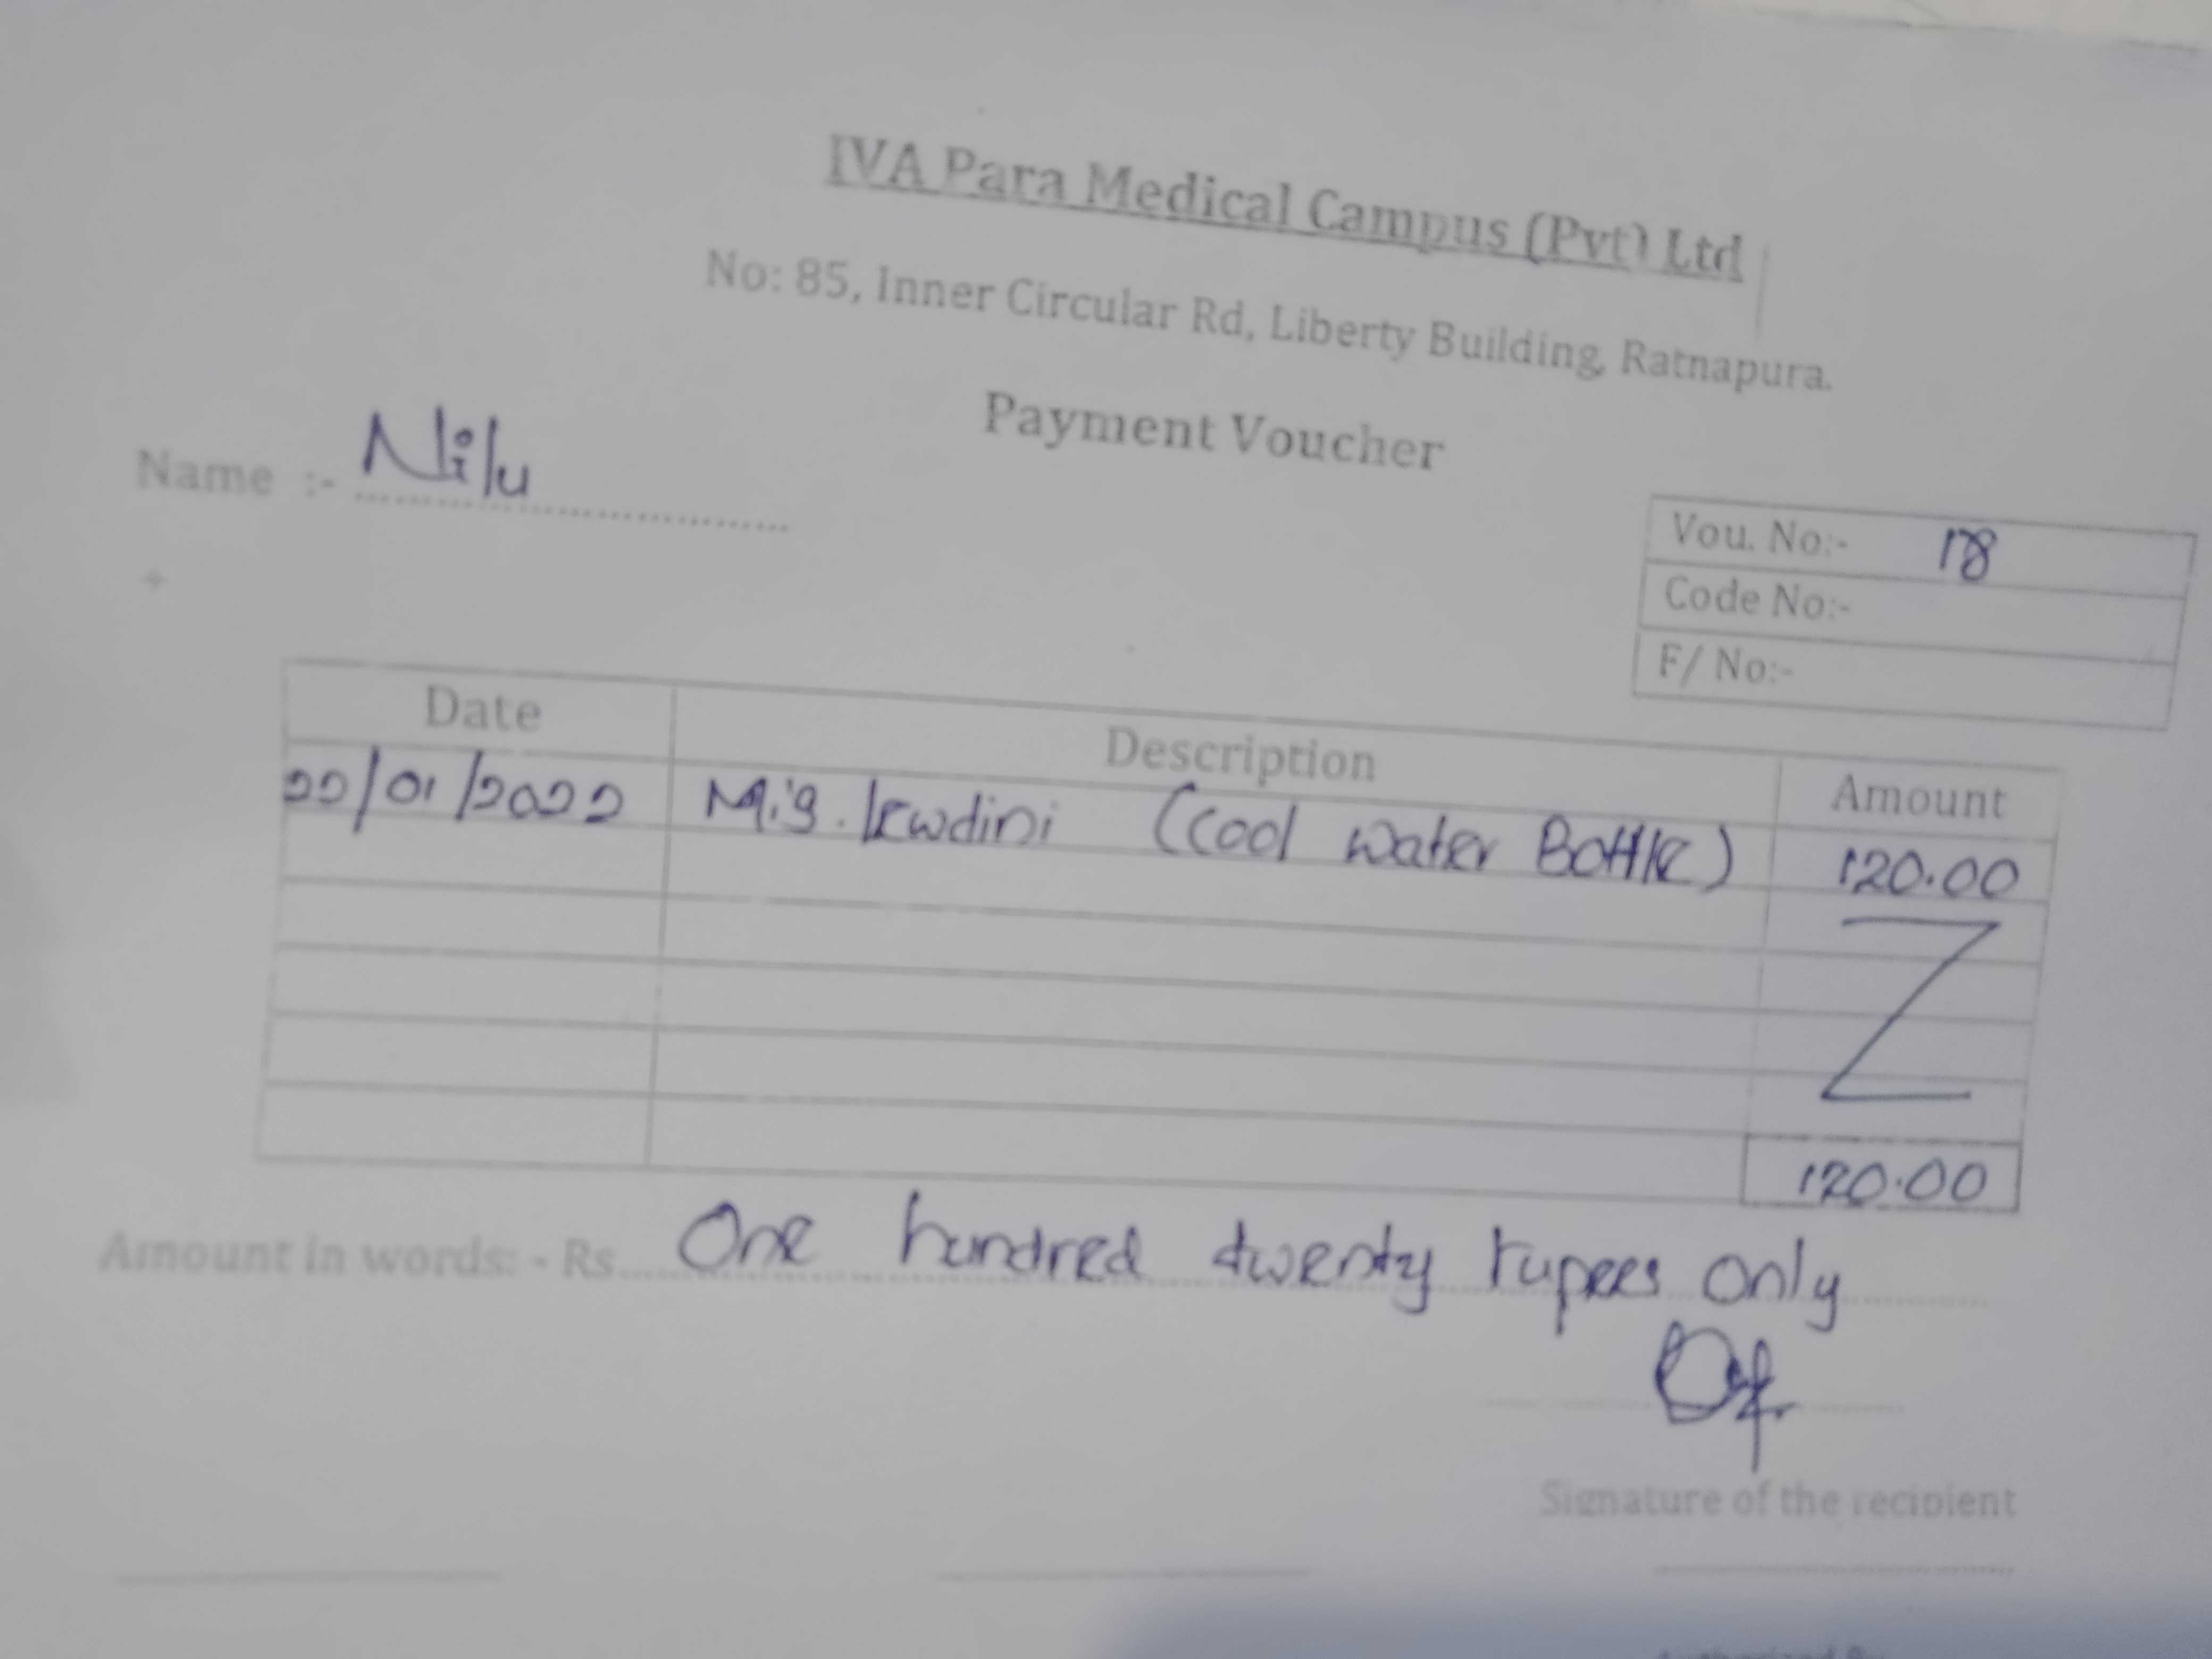 IVA Para Medical Campus (Pvt) Ltd
No: 85, Inner Circular Rd, Liberty Building, Ratnapura.
Payment Voucher
Name :- Nilu
Vou. No:- 18
Code No:-
F/ No:-
Date Description Amount
22/01/2022 (Cool water Bottle) 120.00
120.00
Amount in words: - Rs One hundred twenty rupees only
Signature of the recipient